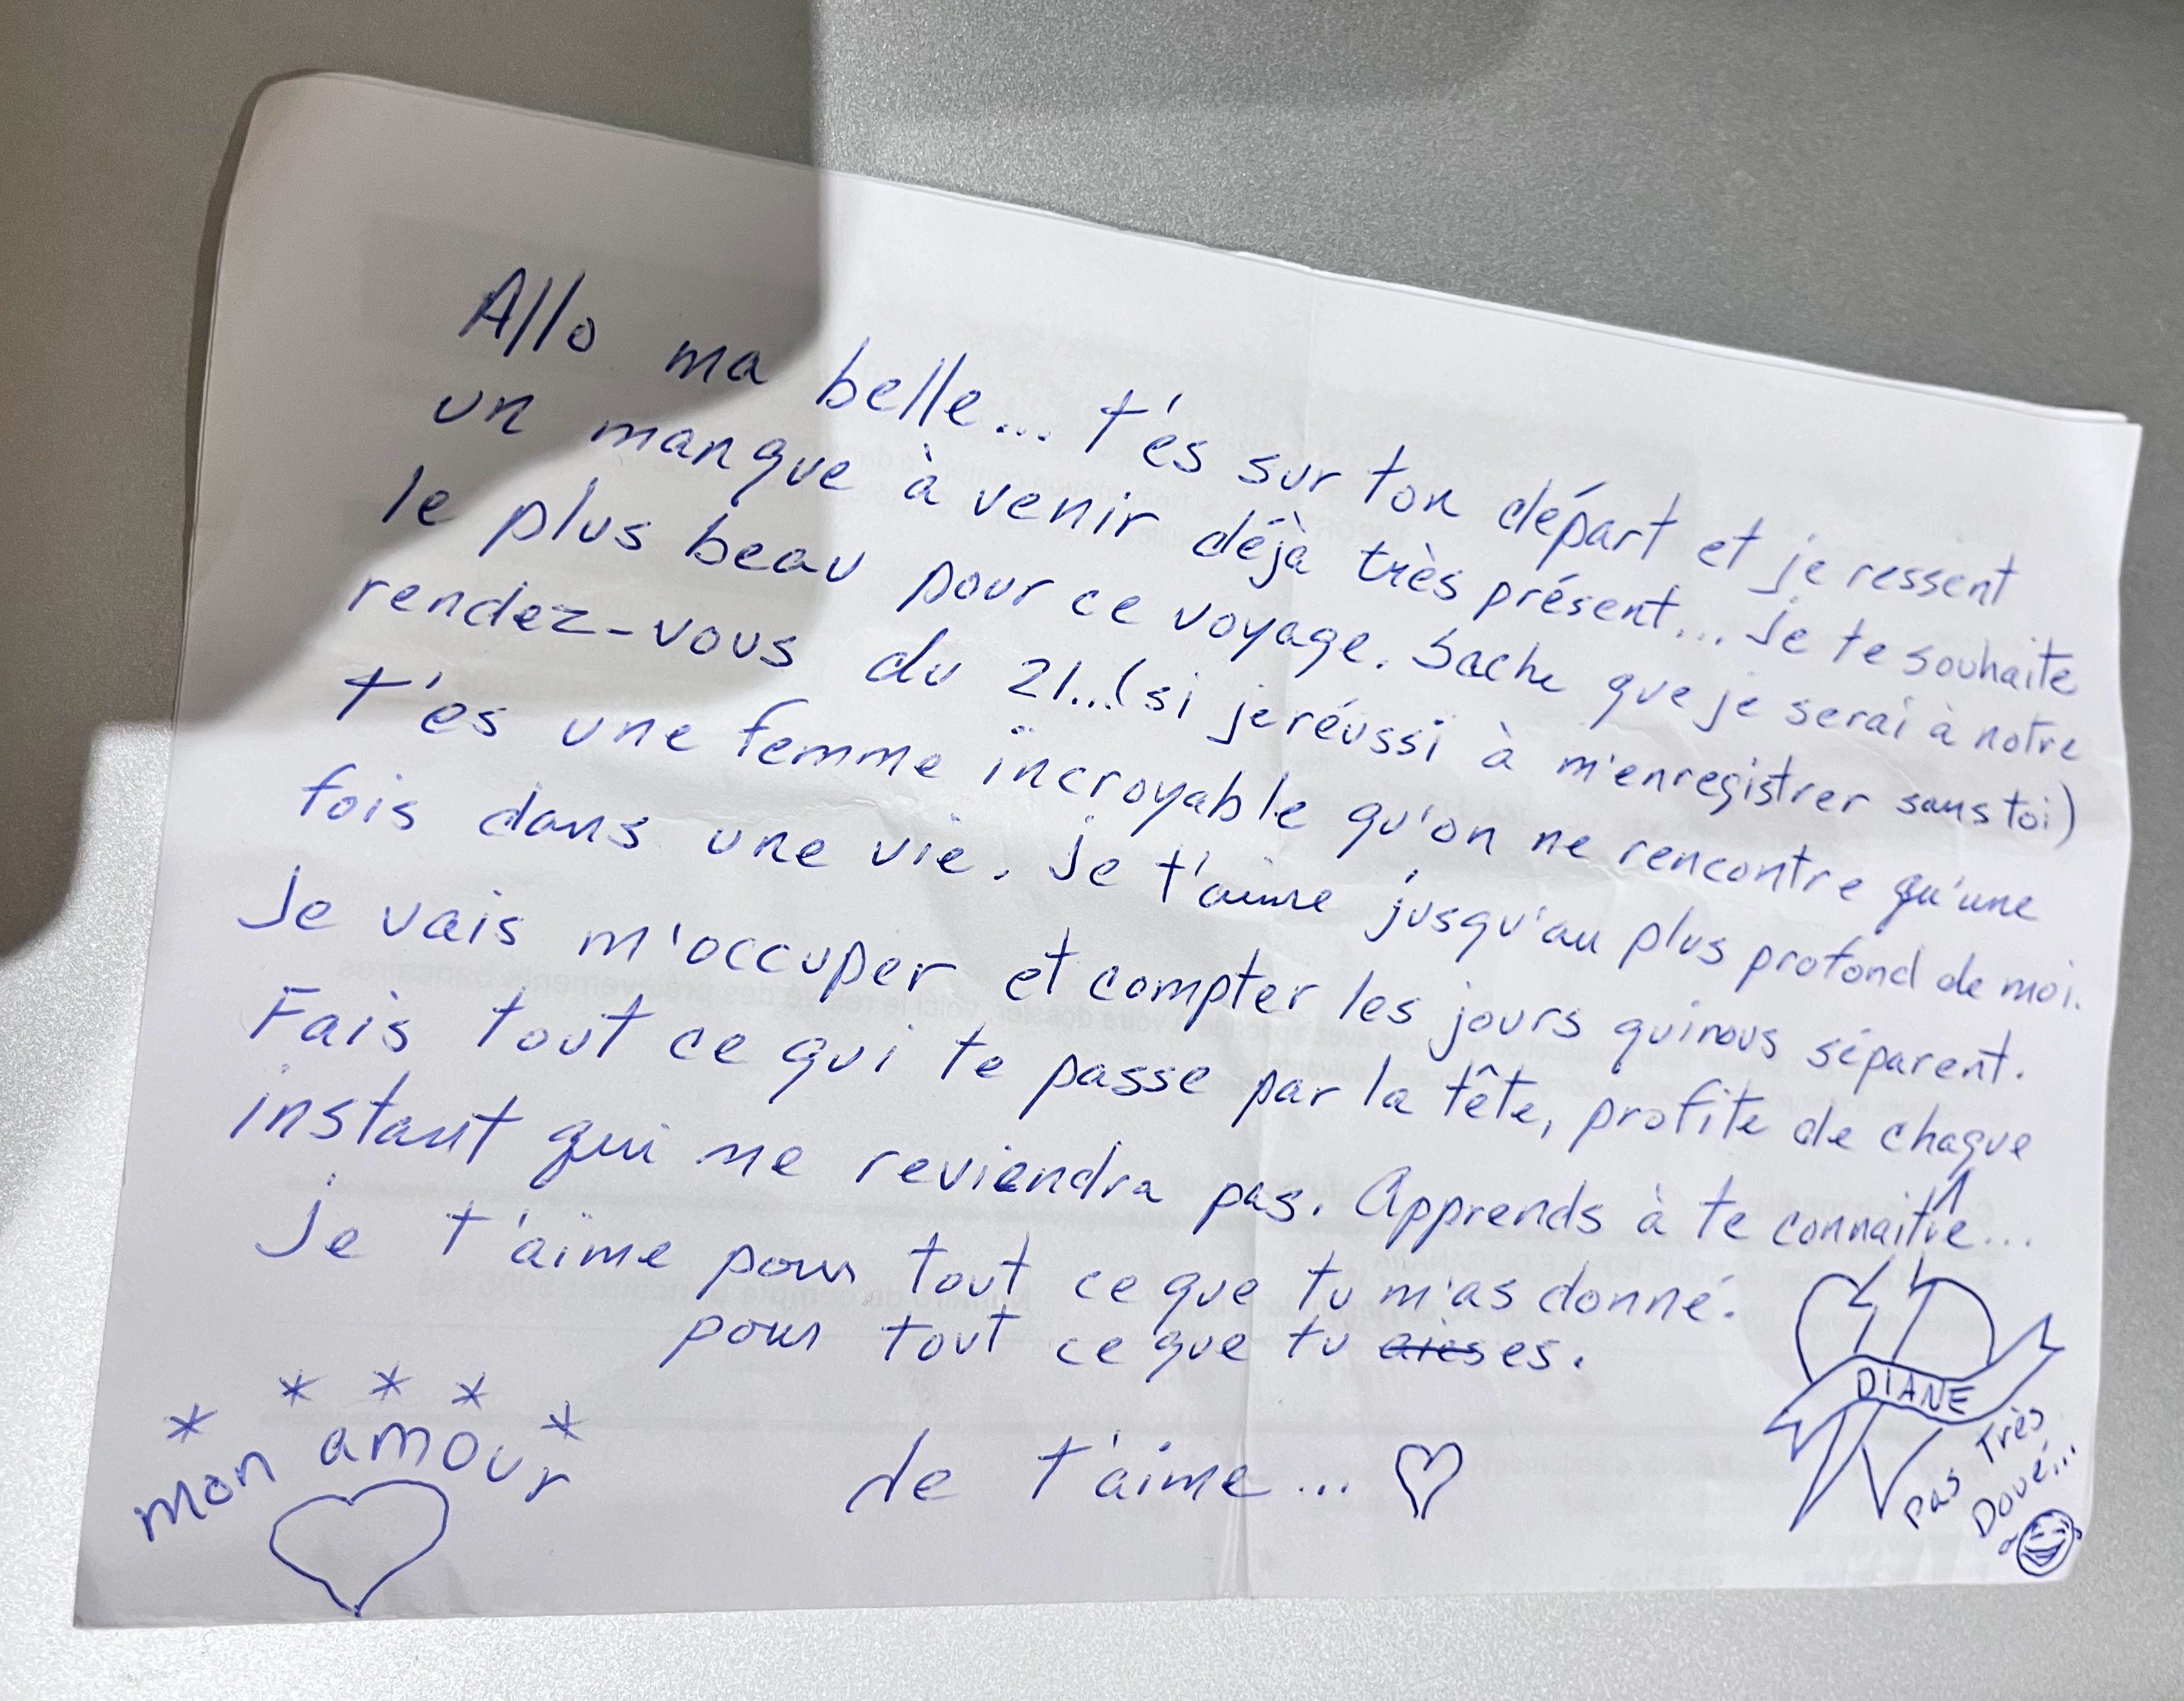 Allo ma belle... t'és sur ton départ et je ressent
un manque à venir déjà très présent... Je te souhaite
le plus beau pour ce voyage. Sache que je serai à notre
rendez-vous du 21...(si je réussi à m'enregistrer sans toi)
T'és une femme incroyable qu'on ne rencontre qu'une
fois dans une vie. Je t'aime jusqu'au plus profond de moi.
Je vais m'occuper et compter les jours qui nous séparent.
Fais tout ce qui te passe par la tête, profite de chaque
instant qui ne reviendra pas. Apprends à te connaître...
Je t'aime pour tout ce que tu m'as donné.
pour tout ce que tu es.
DIANE
Pas Très
Doué...
mon amour
Je t'aime...